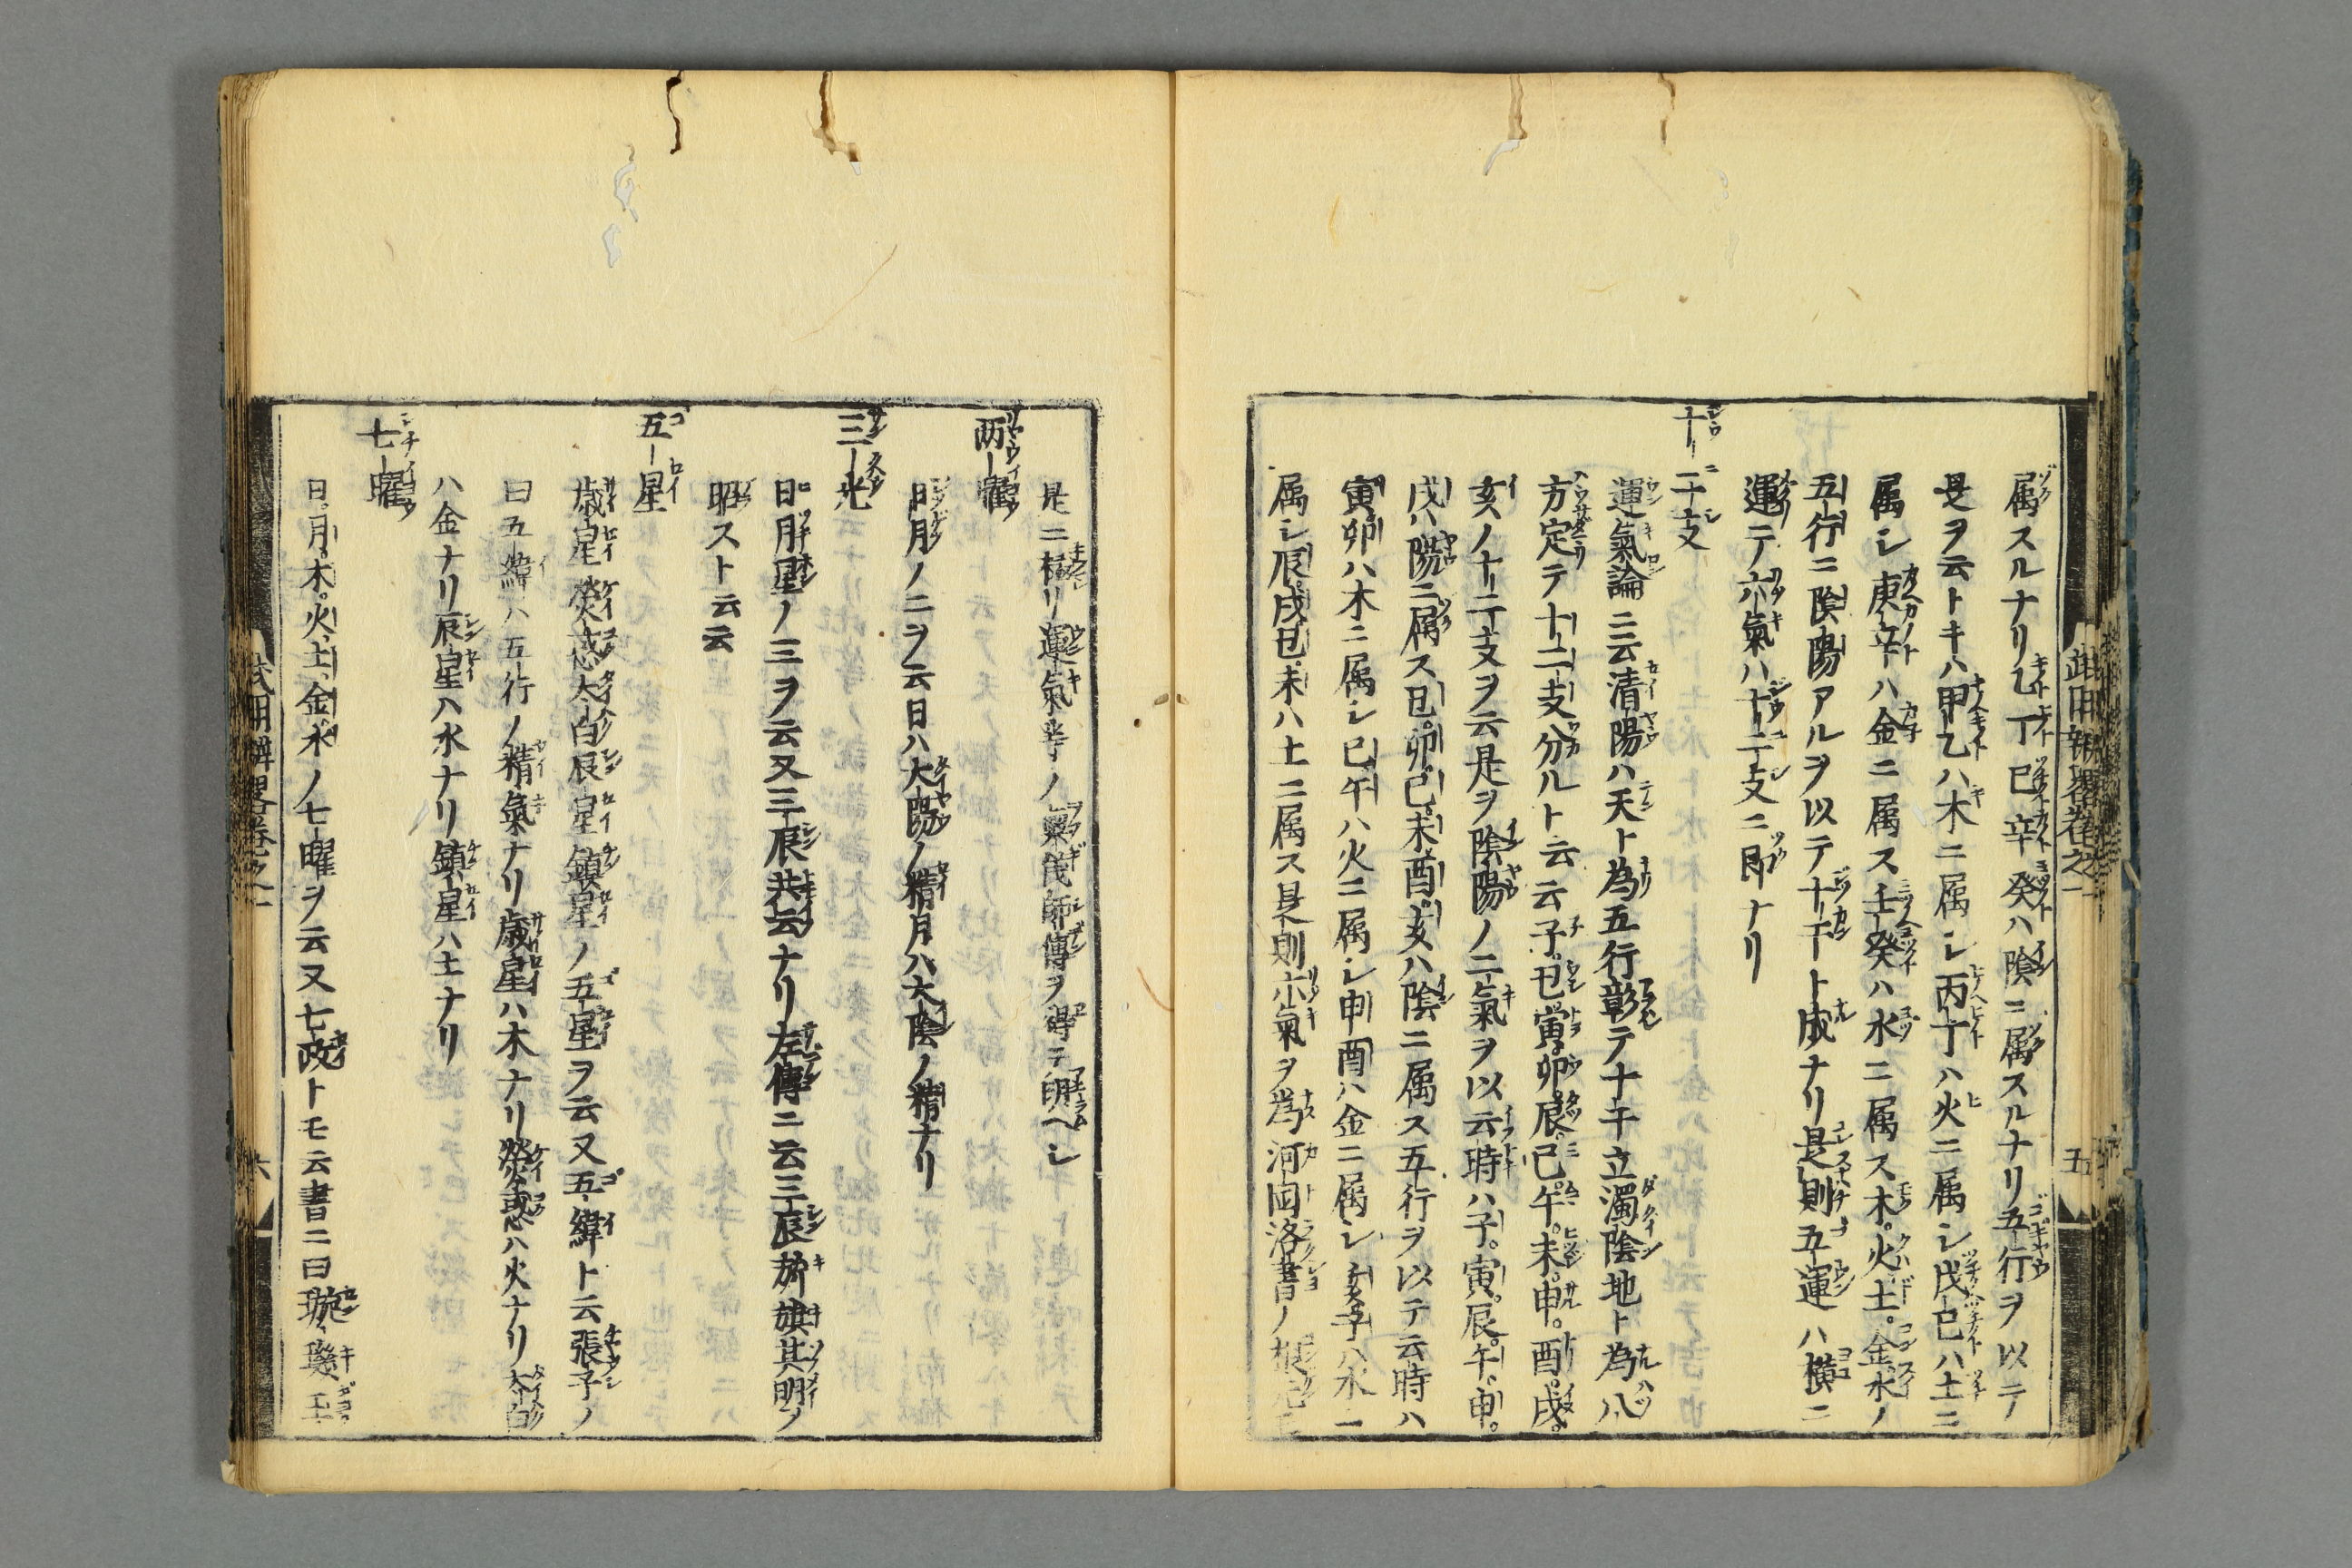 属スルナリ乙丁巳辛癸ハ陰ニ属スルナリ五行ヲ以テ
是ヲ云トキハ甲乙ハ木ニ属シ丙丁ハ火ニ属シ戊己ハ土ニ
属シ庚辛ハ金ニ属ス壬癸ハ水ニ属ス木。火。土。金。水ノ
五行ニ陰陽アルヲ以テ十干ト成ナリ是則五運ハ横ニ
運テ六氣ハ十二支ニ即ナリ
十二支
運氣論ニ云清陽ハ天ト為五行彰テ十干立濁陰地ト為八
方定テ十二支分ルト云云子。丑。寅。卯。辰。巳。午。未。申。酉。戌。
亥ノ十二支ヲ云是ヲ陰陽ノ二氣ヲ以云時ハ子。寅。辰。午。申。
戌ハ陽ニ属ス丑。卯。巳。未。酉。亥ハ陰ニ属ス五行ヲ以テ云時ハ
寅卯ハ木ニ属シ巳午ハ火ニ属シ申酉ハ金ニ属シ亥子ハ水ニ
属シ辰。戌。丑。未ハ土ニ属ス是則六氣ヲ為河図洛書ノ
五
是ニ極リ運氣等ノ奥義師傳ヲ得テ明ヘシ
两曜
日月ノ二ヲ云日ハ大陽ノ精月ハ大陰ノ精ナリ
三光
日月星ノ三ヲ云又三辰共云ナリ左傳ニ云三辰旂旗其明ヲ
昭ストト云云
五星
歳星熒惑太白辰星鎮星ノ五星ヲ云又五緯ト云張子ノ
曰五緯ハ五行ノ精氣ナリ歳星ハ木ナリ熒惑ハ火ナリ太白
ハ金ナリ辰星ハ水ナリ鎮星ハ土ナリ
七曜
日。月。木。火。土。金。水ノ七曜ヲ云又七政トモ云書ニ曰璇璣玉
六